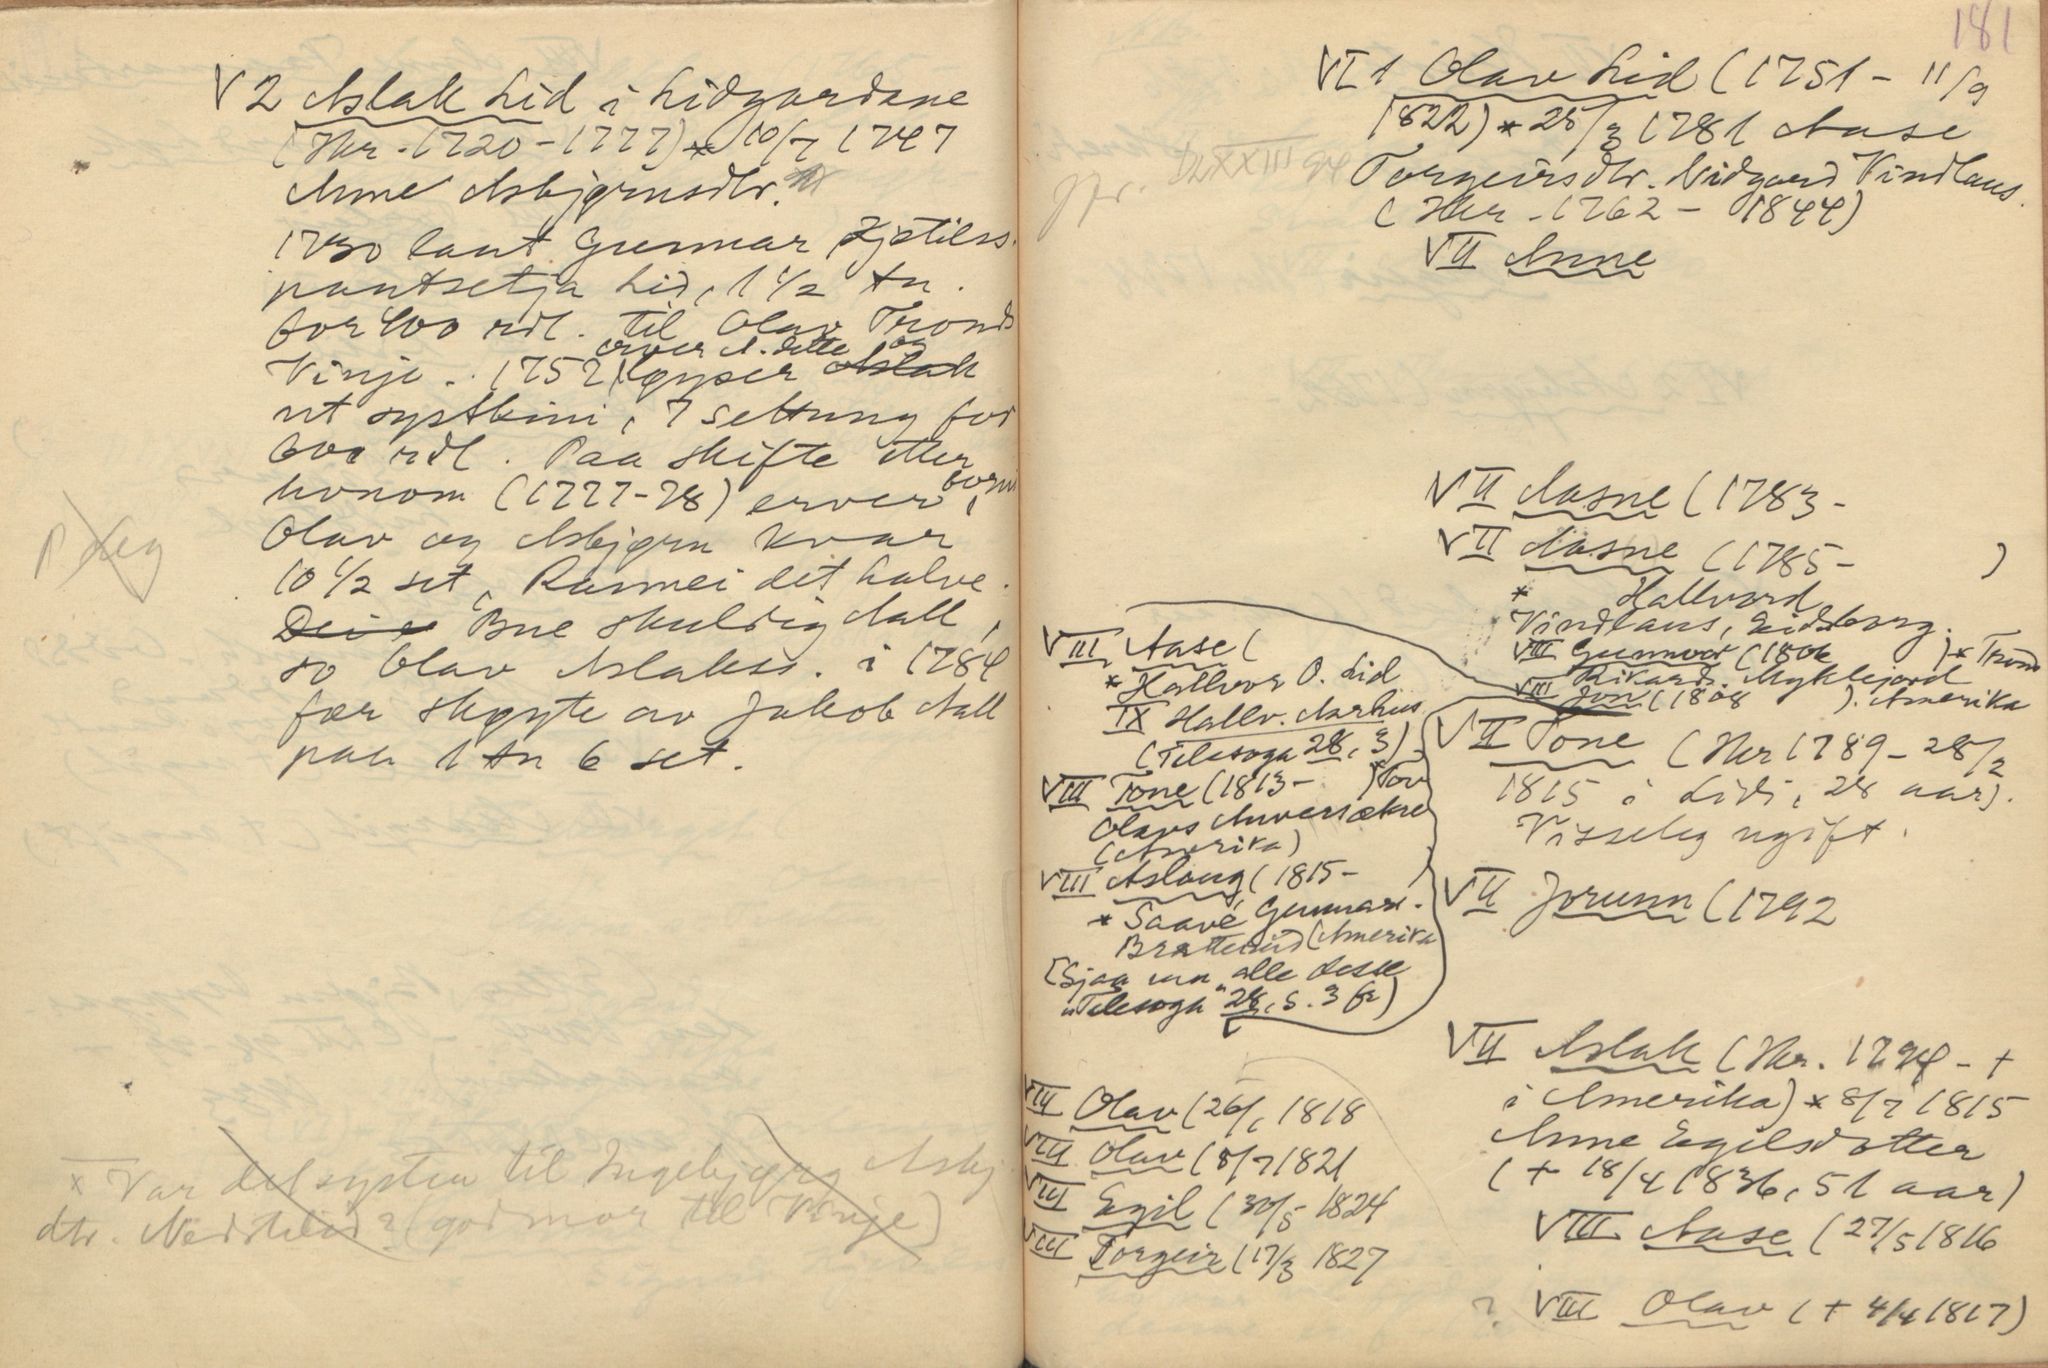 V 2 Aslak Lid i Lidgardane
(Kr. 1720 - 1777) * 10/7 1747
Anne Asbjørnsdtr.
1730 laut Gunnar Kjetilss.
pantsetja Lid, 1 1/2 tn.
for 400 rdl. til Olav Tronds
Vinje. 1752 løyser Aslak
erver A. dette og
ut systkini, 7 settung for
600 rdl. Paa skifte etter
honom (1777-78) erver borni,
Olav og Asbjørn kvar
10 1/2 set, Rannei det halve.
Buet skuldig Aall,
so Olav Aslakss. i 1784
fær skøyte av Jakob Aall
paa 1 tn 6 set.
x Var det systeri til Ingebjørg Asbj.
dtr. Nedstelid? (godmor til Vinje)
181
VI 1 Olav Lid (1751 - 11/9
1822) * 28/3 1781 Aase
Torgeirsdtr. Nidgard Vindlaus.
(Kr. 1762 - 1844)
jfr. XXIII 94
VII Anne
VII Aasne (1783 -
VII Aasne (1785 - )
* Hallvard
Vindlaus, Eidsborg.
VIII Gunnar (1806 ) * Trond
Rikards. Myklejord
VIII Jon (1808 ). Amerika
VII Tone (Kr 1789 - 28/2
1815 i Lidi, 28 aar).
Visseleg ugift.
VII Jorunn (1792
VII Aslak (Kr. 1794 - +
i Amerika) * 8/7 1815
Anne Egilsdotter
(+ 18/4 1836, 51 aar)
VIII Aase (27/5 1816
? VIII Olav (+ 4/4 1817)
VIII Aase (
* Hallvor O. Lid
IX Hallv. Aarhus
(Telesoga 28, 3)
VIII Tone (1813 - ) Tov
Olavs
(Amerika)
VIII Aslaug (1815 - )
* Saave Gunnars.
Bratteland (Amerika
[Sjaa um alle desse
"Telesoga" 28, s. 3 fr)
VIII Olav (26/1 1818
VIII Olav (8/7 1821
VIII Egil (30/5 1824
VIII Torgeir (17/3 1827